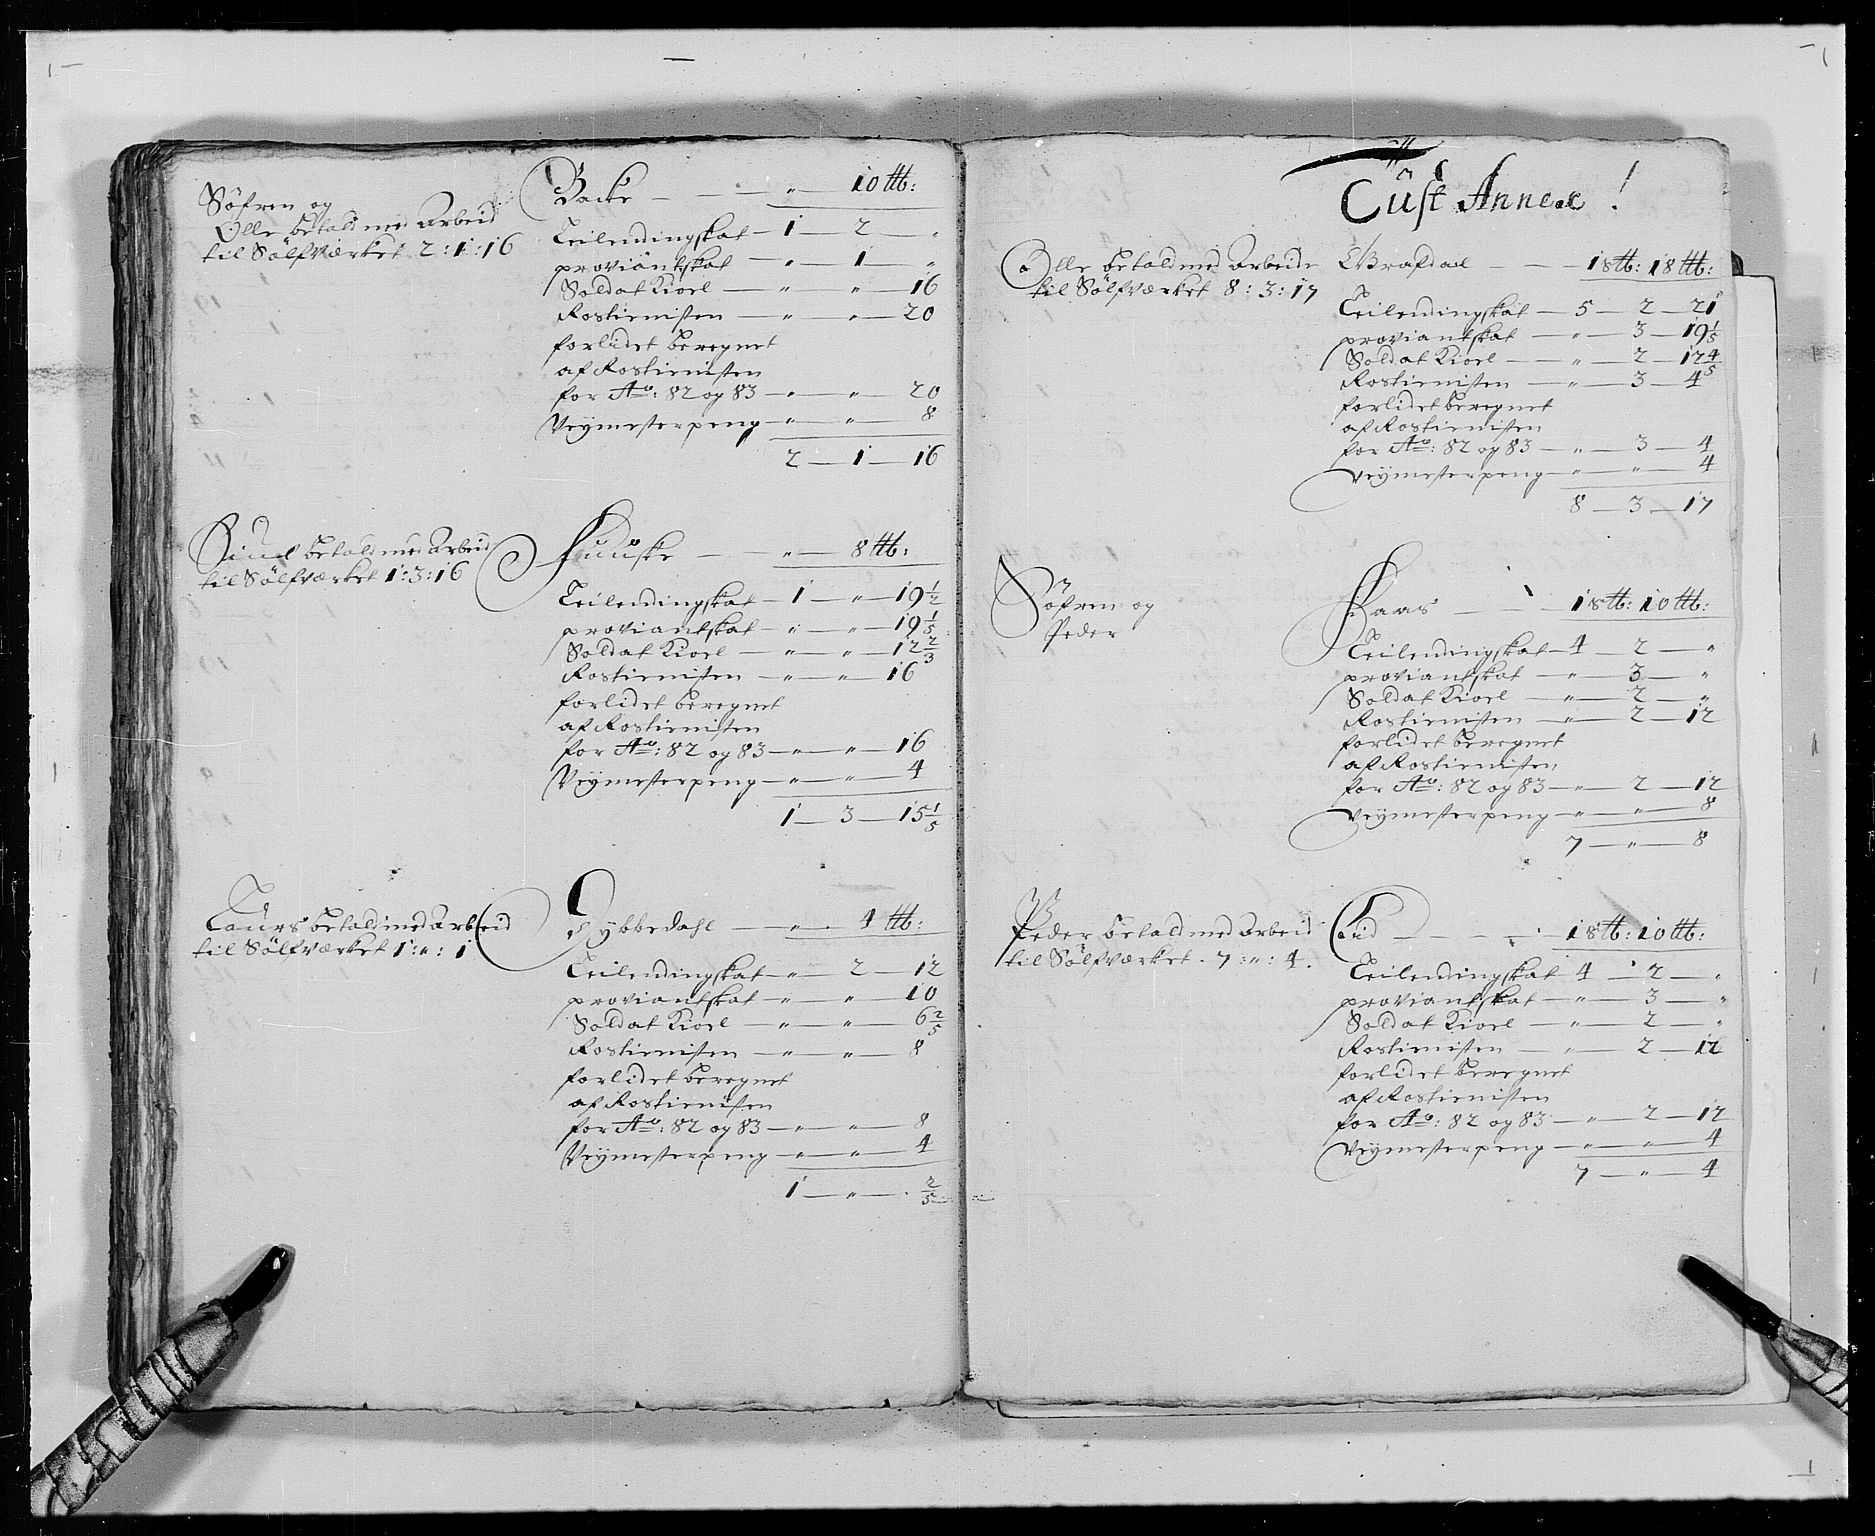 Söfren og
Olle betald med Arbeid
til Sölfværket 2:1:16
Backe — " — 10 ℔:
Leilendingskat — 1 — 2 — "
proviantskat — " — 1 — "
Soldat Kioel — " — " — 16
Rostienisten — " — " — 20
forlidet beregnet
af Rostienisten
for Ao: 82 og 83 — " — " — 20
Veymesterpeng — " — " — 8
2 — 1 — 16
betald med Arbeid
til Sölfværket 1:3:16
Fuuske — " — 8 ℔:
Leilendingskat — 1 — " — 19 1/2
proviantskat — " — " — 19 1/5
Soldat Kioel — " — " — 12 2/3
Rostienisten — " — " — 16
forlidet beregnet
af Rostienisten
for Ao: 82 og 83 — " — " — 16
Veymesterpeng — " — " — 4
1 — 3 — 15 1/5
Laurs betald med Arbeid
til Sölfværket 1:":1
Dykkedahl — " — 4 ℔:
Leilendingskat — " — 2 — 12
proviantskat — " — " — 10
Soldat Kioel — " — " — 6 2/5
Rostienisten — " — " — 8
forlidet beregnet
af Rostienisten
for Ao: 82 og 83 — " — " — 8
Veymesterpeng — " — " — 4
1 — " — 2/5
Tust Annex!
Olle betald med Arbeide
til Sölfværket 8:3:17
Grafdael — 1 s℔: 18 ℔:
Leilendingskat — 5 — 2 — 21
proviantskat — " — 3 — 19 1/5
Soldat Kioel — " — 2 — 12 4/5
Rostienisten — " — 3 — 4
forlidet beregnet
af Rostienisten
for Ao: 82 og 83 — " — 3 — 4
veymesterpeng — " — " — 4
8 — 3 — 17
Söfren og
Peder
Haas — 1 s℔: 10 ℔:
Leilendingskat — 4 — 2 — "
proviantskat — " — 3 — "
Soldat Kioel — " — 2 — "
Rostienisten — " — 2 — 12
forlidet beregnet
af Rostienisten
for Ao: 82 og 83 — " — 2 — 12
veymesterpeng — " — " — 8
7 — " — 8
Peder betald med Arbeid
til Sölfværket . 7:":4.
Eid — 1 s℔: 10 ℔:
Leilendingskat 4 — 2 — "
proviantskat — " — 3 — "
Soldat Kioel — " — 2 — "
Rostienisten — " — 2 — 12
forlidet beregnet
af Rostienisten
for Ao: 82 og 83 — " — 2 — 12
Veymesterpeng — " — " — 4
7 — " — 4